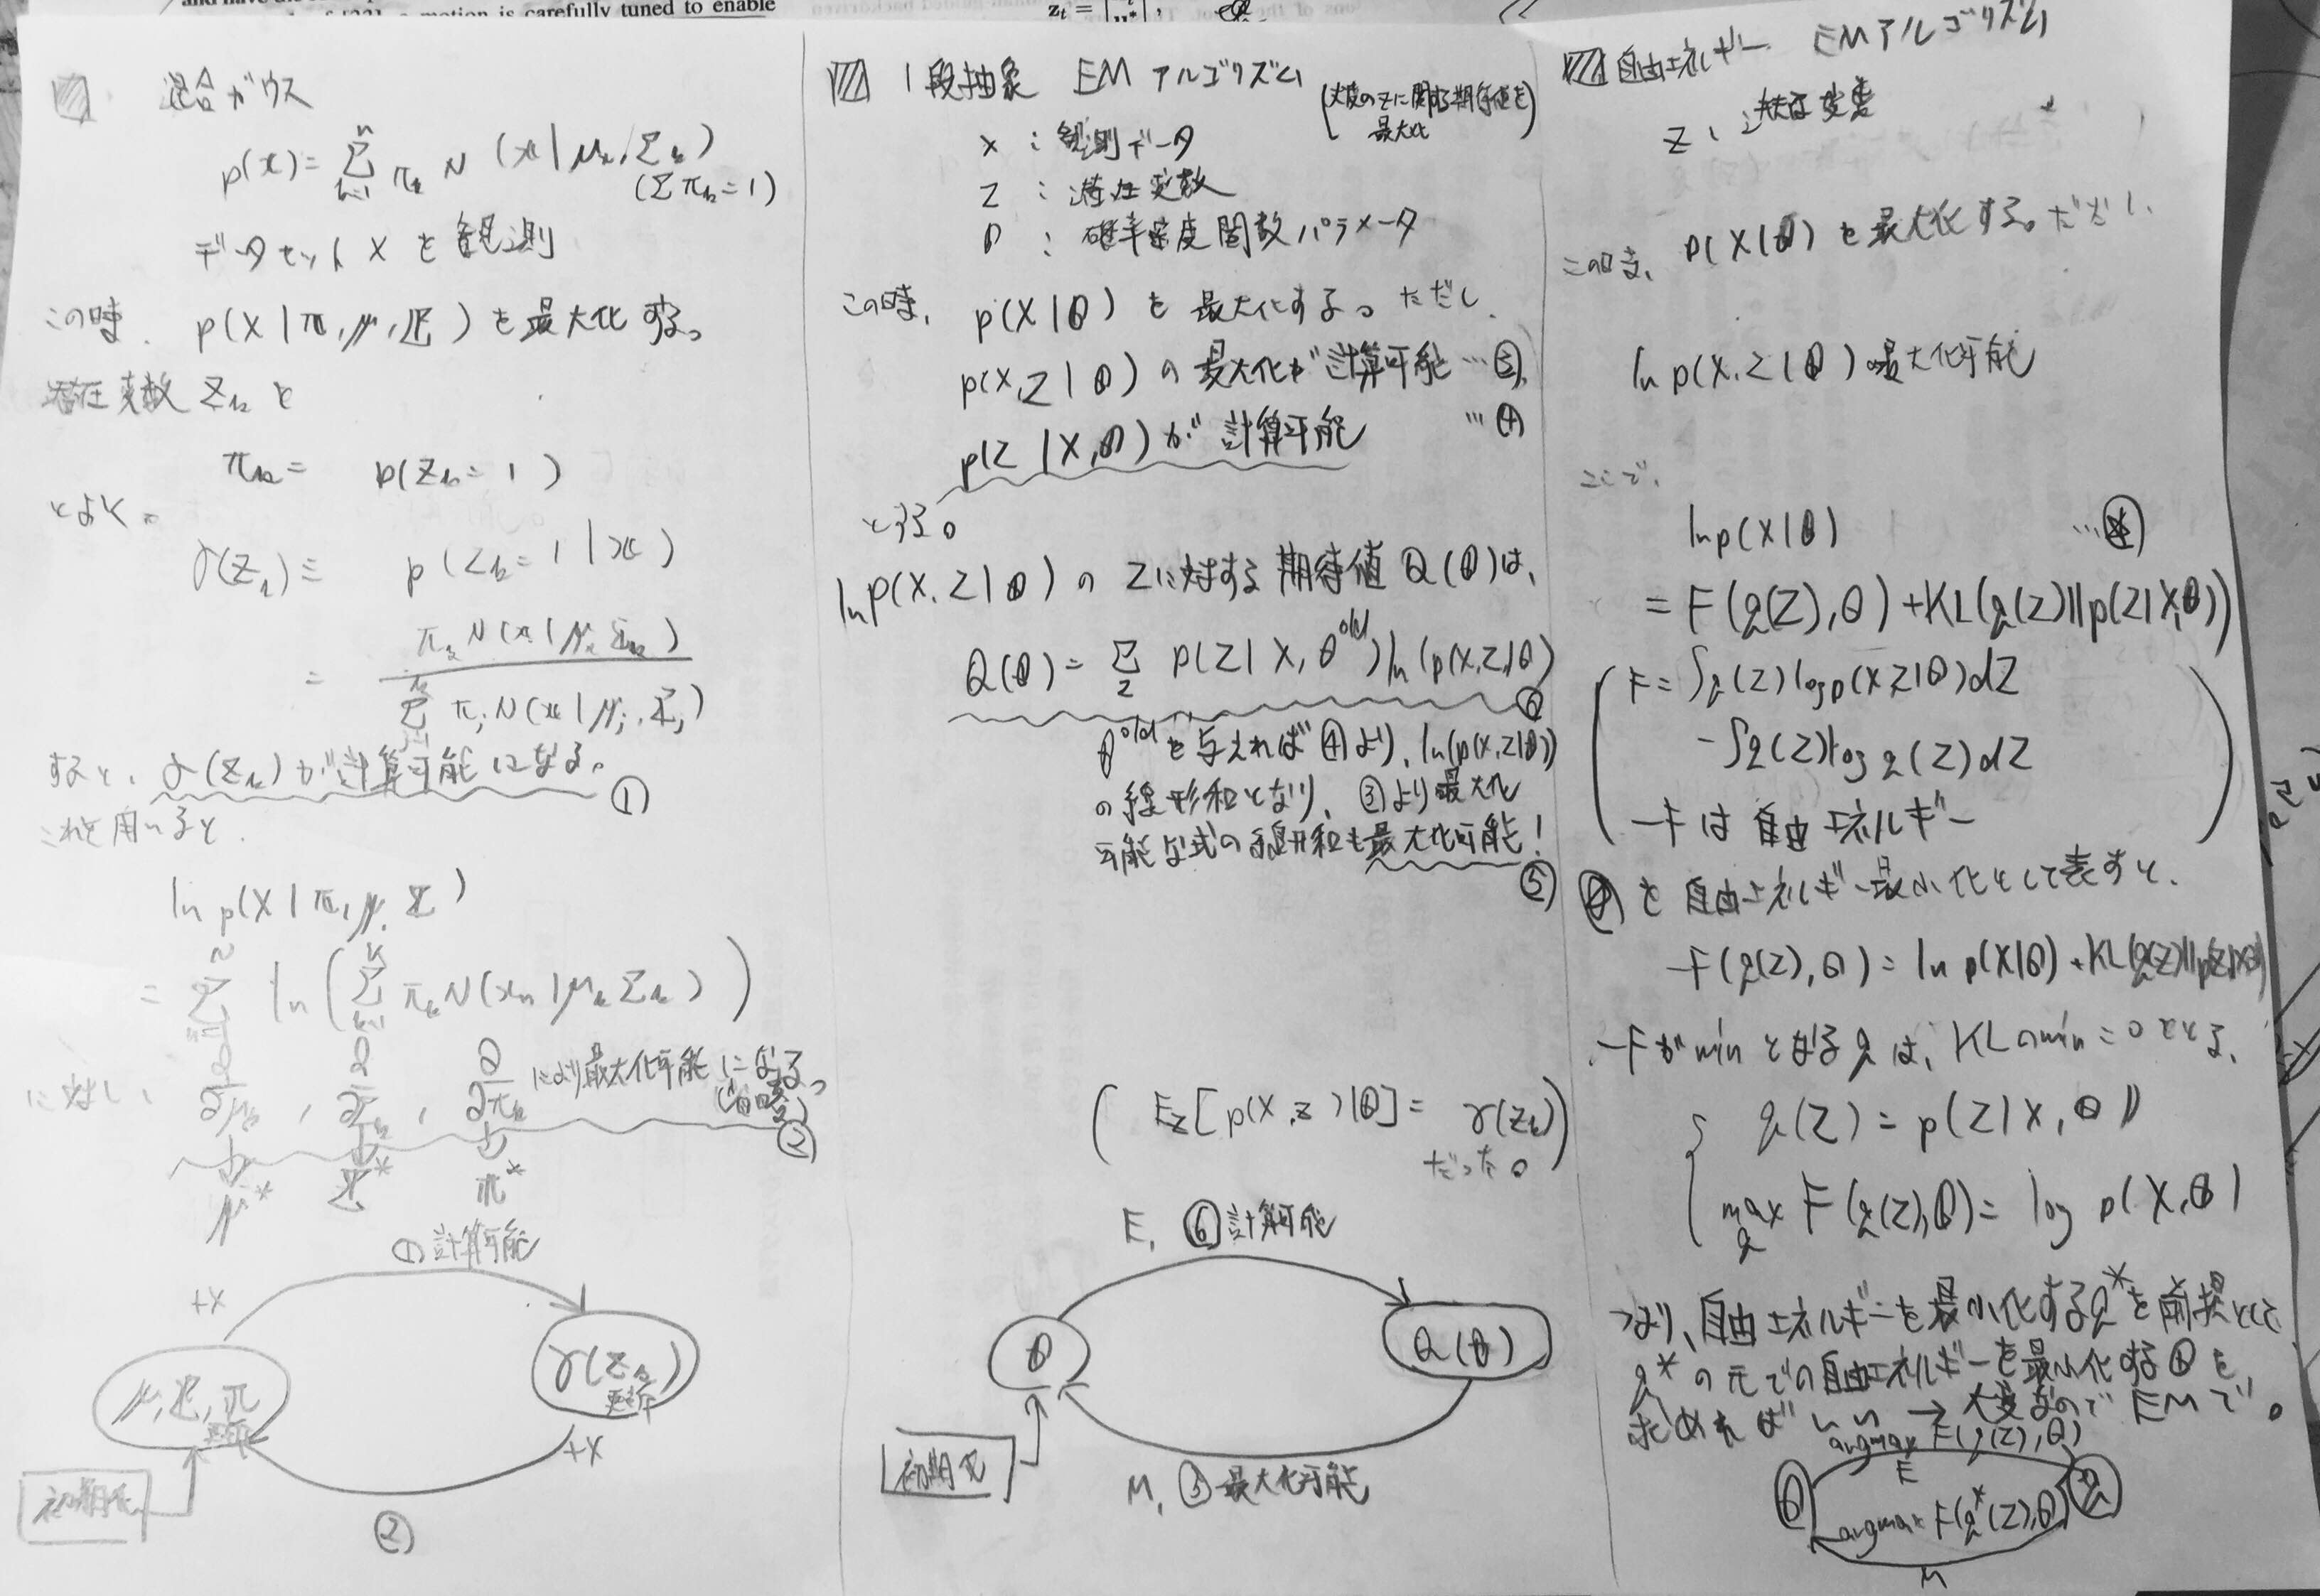 and have the
a motion is carefully tuned to enable
混合ガウス
p(x) = Σ_{k=1} π_k N (x | μ_k, Σ_k)
(Σπ_k = 1)
データセット X を観測
この時、 p(X | π, μ, Σ) を最大化する。
潜在変数 z_k を
π_k = p(z_k = 1)
とおく。
γ(z_k) ≡ p(z_k = 1 | x)
= π_k N(x | μ_k Σ_k) / Σ π_j N(x | μ_j, Σ_j)
すると、γ(z_k) が計算可能になる。 ①
これを用いると、
ln p(X | π, μ, Σ)
= Σ ln ( Σ_{k=1}^{K} π_k N(x_n | μ_k Σ_k) )
に対し、 ∂/∂μ_k , ∂/∂Σ_k , ∂/∂π_k により最大化可能になる。
(省略) ②
μ* Σ* π*
①計算可能
+X
μ, Σ, π 更新
γ(z_k) 更新
+X
初期化
②
1段抽象 EM アルゴリズム
(尤度のzに関する期待値を
最大化)
X : 観測データ
Z : 潜在変数
θ : 確率密度関数パラメータ
この時、 p(X|θ) を最大化する。ただし、
p(X,Z|θ) の最大化が計算可能 … ③,
p(Z|X,θ) が計算可能 … ④
とする。
ln p(X,Z|θ) の Zに対する期待値 Q(θ)は、
Q(θ) = Σ_Z p(Z|X, θ^old) ln(p(X,Z|θ)) ⑥
θ^old を与えれば④より、ln(p(X,Z|θ))
の線形和となり、③より最大化
可能な式の線形和も最大化可能! ⑤
( E_Z[p(X,Z)|θ] = γ(z_k)
だった。)
E, ⑥計算可能
θ
Q(θ)
初期化
M, ⑤最大化可能
自由エネルギー EMアルゴリズム
Z : 潜在変数
この時、 p(X|θ) を最大化する。ただし、
ln p(X,Z|θ) 最大化可能
ここで、
ln p(X|θ) …
= F(q(Z),θ) + KL(q(Z)||p(Z|X,θ))
( F = ∫q(Z) log p(X,Z|θ)dZ
- ∫q(Z) log q(Z) dZ
-F は 自由エネルギー )
を自由エネルギー最小化として表すと、
-F(q(Z),θ) = ln p(X|θ) + KL(q(Z)||p(Z|X,θ))
-Fがminとなるqは、KLのmin = 0 となる、
{ q(Z) = p(Z|X, θ)
max_q F(q(Z),θ) = log p(X,θ)
つまり、自由エネルギーを最小化するq*を前提として
q*の元での自由エネルギーを最小化するθを
求めればいい → 大変なので EMで。
argmax F(q(Z),θ)
E
θ
q
argmax F(q*(Z),θ)
M